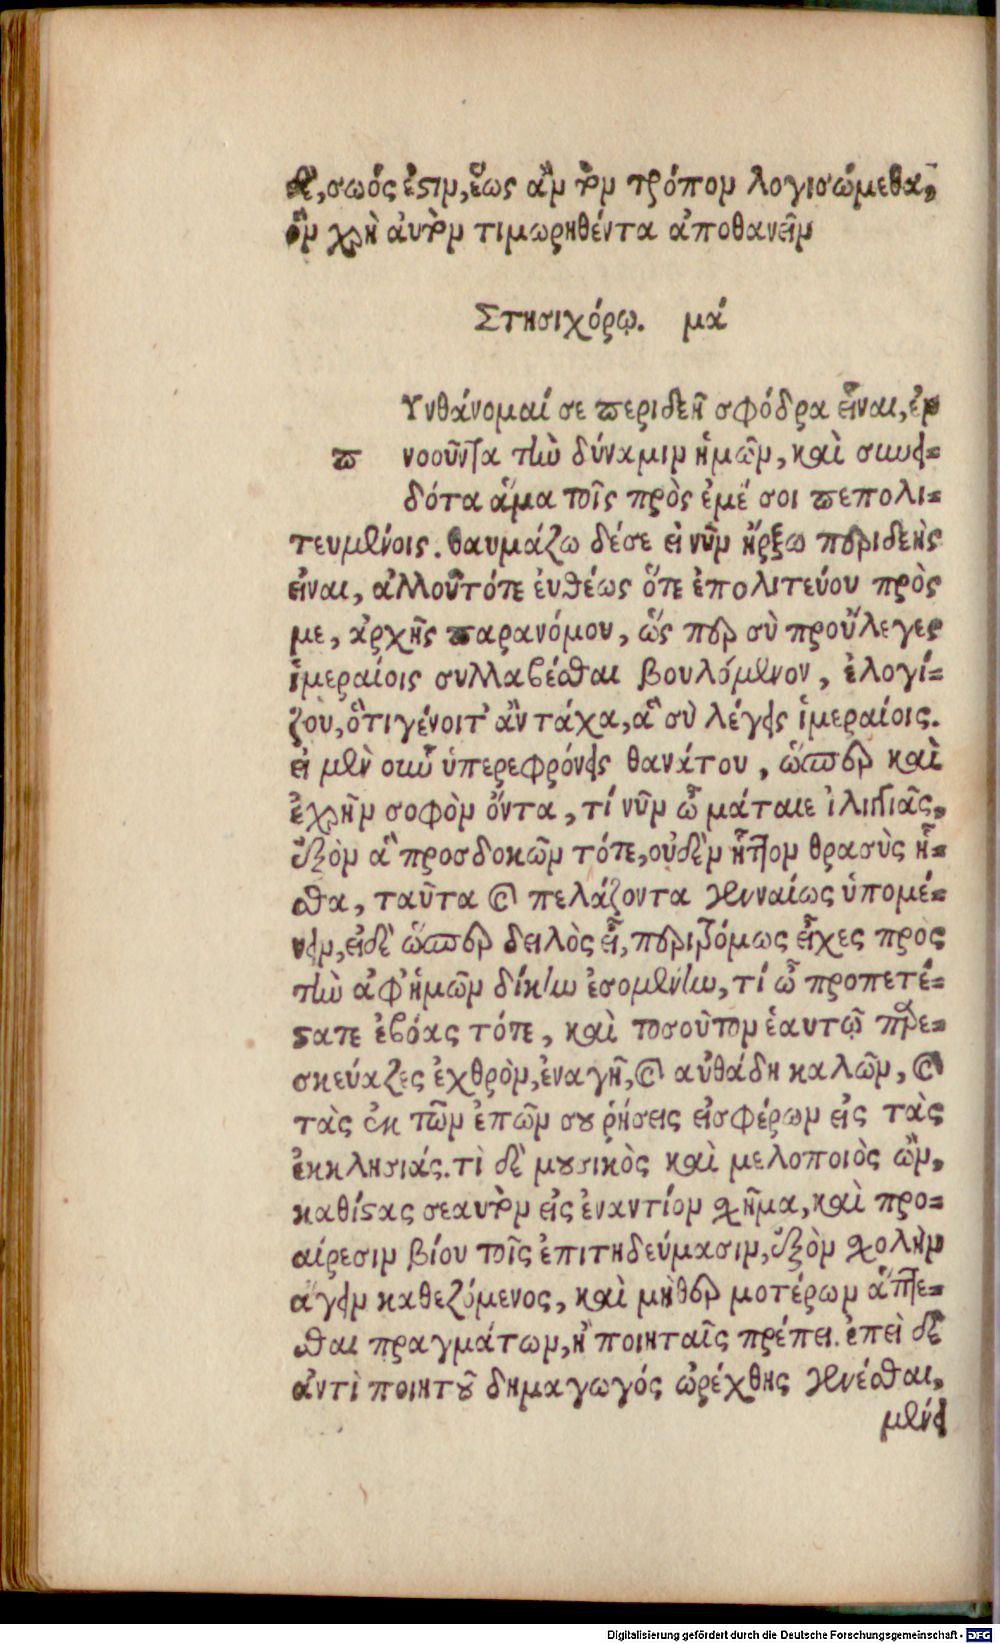 δὲ, σωός ἐστιν, ἕως ἂν τὸν τρόπον λογισώμεθα,
ὃν χρὴ αὐτὸν τιμωρηθέντα ἀποθανεῖν
Στησιχόρῳ. μά
Υνθάνομαί σε περιδεῆ σφόδρα εἶναι, ἐν
π νοοῦντα τὴν δύναμιν ἡμῶν, καὶ συνει-
δότα ἅμα τοῖς πρὸς ἐμέ σοι πεπολι-
τευμένοις. θαυμάζω δέ σε εἰ νῦν ἤρξω περιδεὴς
εἶναι, ἀλλ' οὐ τότε ἐυθέως ὅτε ἐπολιτεύου πρὸς
με, ἀρχῆς παρανόμου, ὥς περ σὺ προὔλεγες
ἱμεραίοις συλλαβέσθαι βουλόμενον, ἐλογί-
ζου, ὅτι γένοιτ' ἂν τάχα, ἃ σὺ λέγεις ἱμεραίοις.
εἰ μὲν οὖν ὑπερεφρόνεις θανάτου, ὥσπερ καὶ
ἐχρῆν σοφὸν ὄντα, τί νῦν ὦ μάταιε ἰλιγγιᾶς,
ἐξὸν ἃ προσδοκῶν τότε, οὐδὲν ἧττον θρασὺς ἦ-
σθα, ταῦτα καὶ πελάζοντα γενναίως ὑπομέ-
νειν, εἰ δὲ ὥσπερ δειλὸς εἶ, περιτρόμως εἶχες πρὸς
τὴν ἀφ' ἡμῶν δίκην ἐσομένην, τί ὦ προπετέ-
στατε ἐβόας τότε, καὶ τοσοῦτον ἑαυτῷ παρε-
σκεύαζες ἐχθρὸν, ἐναγῆ, καὶ αὐθάδη καλῶν, καὶ
τὰς ἐκ τῶν ἐπῶν σου ῥήσεις εἰσφέρων εἰς τὰς
ἐκκλησιάς. τὶ δὲ μουσικὸς καὶ μελοποιὸς ὢν,
καθίστας σεαυτὸν εἰς ἐναντίον σχῆμα, καὶ προ-
αίρεσιν βίου τοῖς ἐπιτηδεύμασιν, ἐξὸν σχολὴν
ἄγειν καθεζόμενος, καὶ μὴ θερ μοτέρων ἅπτε-
σθαι πραγμάτων, ἢ ποιηταῖς πρέπει. ἐπεὶ δὲ
ἀντὶ ποιητοῦ δημαγωγός ὠρέχθης γενέσθαι,
μένει
Digitalisierung gefördert durch die Deutsche Forschungsgemeinschaft - DFG